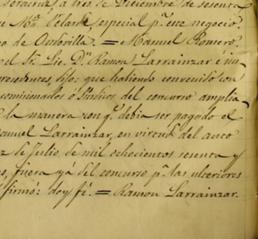 Veracruz, a tres de Diciembre de sesenta
especial pª este negocio
= Manuel Romero,
el Sr. Lic. Dn. Ramon Larrainzar é im
dijo: que habiendo convenido con
comisionados ó Sindicos del concurso amplia
la manera con qe. debia ser pagado el
anuel Larrainzar, en virtud del auto
z de Julio de mil ochocientos setenta y
s, fuera ya del concurso pª las ulteriores
firmó: doy fé. = Ramon Larrainzar.